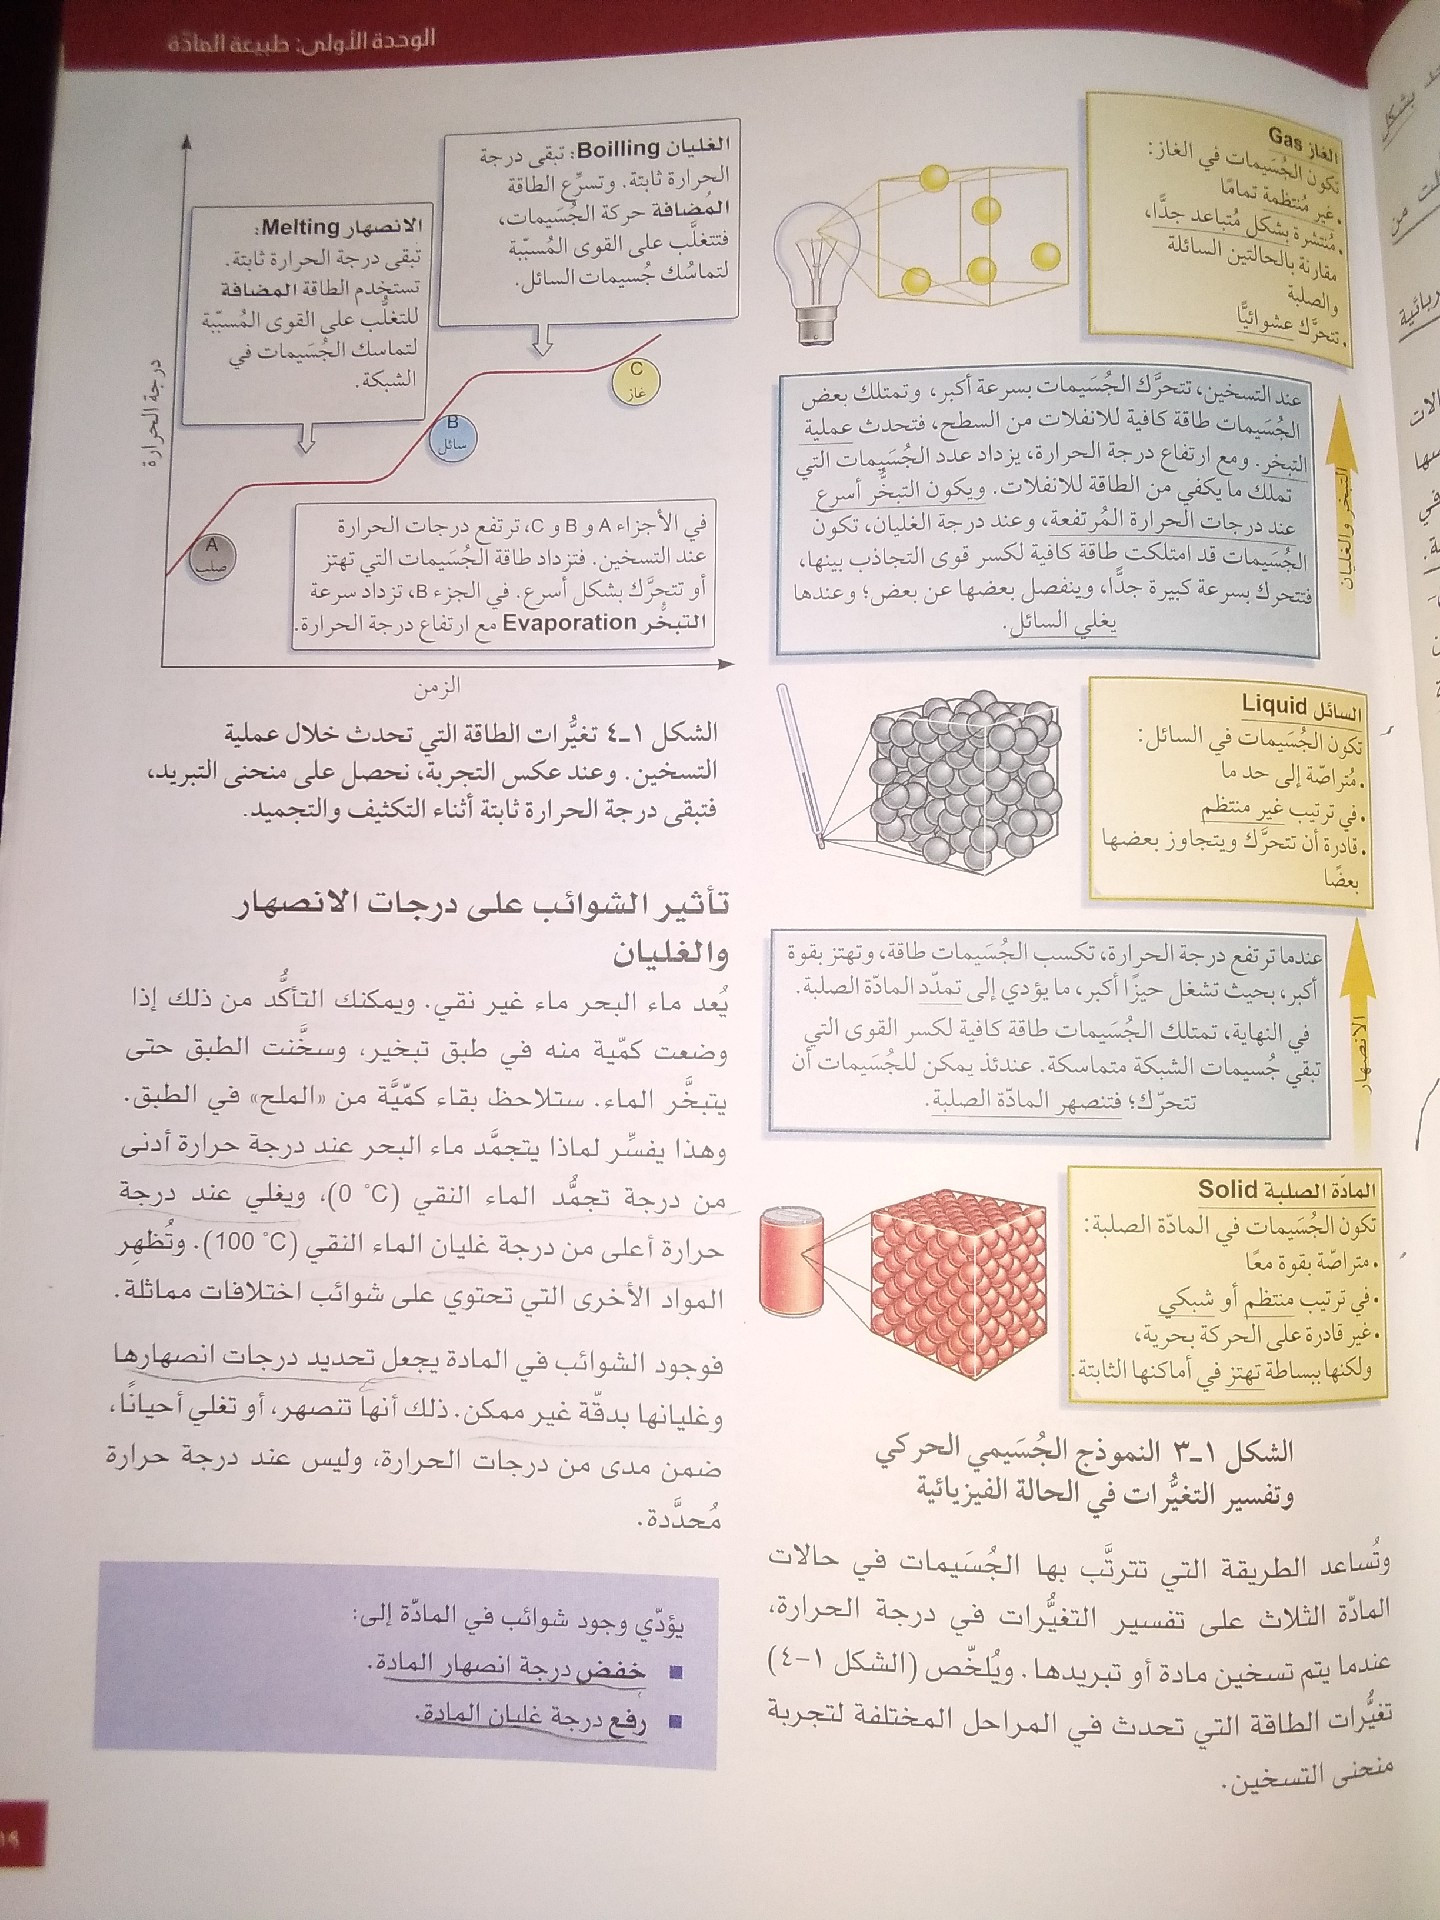 الوحدة الأولى: طبيعة المادّة
الغاز Gas
تكون الجُسَيمات في الغاز:
• غير مُنتظمة تمامًا
• مُنتشرة بشكل مُتباعد جدًّا،
مقارنة بالحالتين السائلة
والصلبة
• تتحرَّك عشوائيًّا
عند التسخين، تتحرَّك الجُسَيمات بسرعة أكبر، وتمتلك بعض
الجُسَيمات طاقة كافية للانفلات من السطح، فتحدث عملية
التبخر. ومع ارتفاع درجة الحرارة، يزداد عدد الجُسَيمات التي
تملك ما يكفي من الطاقة للانفلات. ويكون التبخُّر أسرع
عند درجات الحرارة المُرتفعة، وعند درجة الغليان، تكون
الجُسَيمات قد امتلكت طاقة كافية لكسر قوى التجاذب بينها،
فتتحرك بسرعة كبيرة جدًّا، وينفصل بعضها عن بعض؛ وعندها
يغلي السائل.
التبخر والغليان
السائل Liquid
تكون الجُسَيمات في السائل:
• مُتراصّة إلى حد ما
• في ترتيب غير منتظم
• قادرة أن تتحرَّك ويتجاوز بعضها
بعضًا
عندما ترتفع درجة الحرارة، تكسب الجُسَيمات طاقة، وتهتز بقوة
أكبر، بحيث تشغل حيزًا أكبر، ما يؤدي إلى تمدّد المادّة الصلبة.
في النهاية، تمتلك الجُسَيمات طاقة كافية لكسر القوى التي
تبقي جُسيمات الشبكة متماسكة. عندئذ يمكن للجُسَيمات أن
تتحرّك؛ فتنصهر المادّة الصلبة.
الانصهار
المادّة الصلبة Solid
تكون الجُسَيمات في المادّة الصلبة:
• متراصّة بقوة معًا
• في ترتيب منتظم أو شبكي
• غير قادرة على الحركة بحرية،
ولكنها ببساطة تهتز في أماكنها الثابتة.
الشكل ١-٣ النموذج الجُسَيمي الحركي
وتفسير التغيُّرات في الحالة الفيزيائية
وتُساعد الطريقة التي تترتَّب بها الجُسَيمات في حالات
المادّة الثلاث على تفسير التغيُّرات في درجة الحرارة،
عندما يتم تسخين مادة أو تبريدها. ويُلخّص (الشكل ١-٤)
تغيُّرات الطاقة التي تحدث في المراحل المختلفة لتجربة
منحنى التسخين.
الغليان Boilling: تبقى درجة
الحرارة ثابتة. وتسرِّع الطاقة
المُضافة حركة الجُسَيمات،
فتتغلَّب على القوى المُسبّبة
لتماسُك جُسيمات السائل.
الانصهار Melting:
تبقى درجة الحرارة ثابتة.
تستخدم الطاقة المضافة
للتغلُّب على القوى المُسبّبة
لتماسك الجُسَيمات في
الشبكة.
درجة الحرارة
C
غاز
B
سائل
A
صلب
في الأجزاء A و B و C، ترتفع درجات الحرارة
عند التسخين. فتزداد طاقة الجُسَيمات التي تهتز
أو تتحرَّك بشكل أسرع. في الجزء B، تزداد سرعة
التبخُّر Evaporation مع ارتفاع درجة الحرارة.
الزمن
الشكل ١-٤ تغيُّرات الطاقة التي تحدث خلال عملية
التسخين. وعند عكس التجربة، نحصل على منحنى التبريد،
فتبقى درجة الحرارة ثابتة أثناء التكثيف والتجميد.
تأثير الشوائب على درجات الانصهار
والغليان
يُعد ماء البحر ماء غير نقي. ويمكنك التأكُّد من ذلك إذا
وضعت كمّية منه في طبق تبخير، وسخَّنت الطبق حتى
يتبخَّر الماء. ستلاحظ بقاء كمّيَّة من «الملح» في الطبق.
وهذا يفسِّر لماذا يتجمَّد ماء البحر عند درجة حرارة أدنى
من درجة تجمُّد الماء النقي (0 °C)، ويغلي عند درجة
حرارة أعلى من درجة غليان الماء النقي (100 °C). وتُظهِر
المواد الأخرى التي تحتوي على شوائب اختلافات مماثلة.
فوجود الشوائب في المادة يجعل تحديد درجات انصهارها
وغليانها بدقّة غير ممكن. ذلك أنها تنصهر، أو تغلي أحيانًا،
ضمن مدى من درجات الحرارة، وليس عند درجة حرارة
مُحدَّدة.
يؤدّي وجود شوائب في المادّة إلى:
■ خفض درجة انصهار المادة.
■ رفع درجة غليان المادة.
١٩